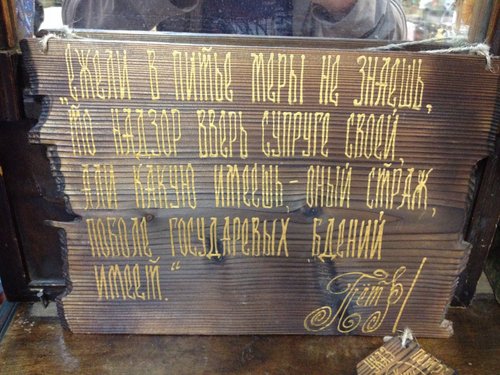 "Ежели в питье меры не знаешь,
то надзор вверь супруге своей,
али какую имеешь,- оный страж,
поболе государевых бдений
имеет."
Пётр I